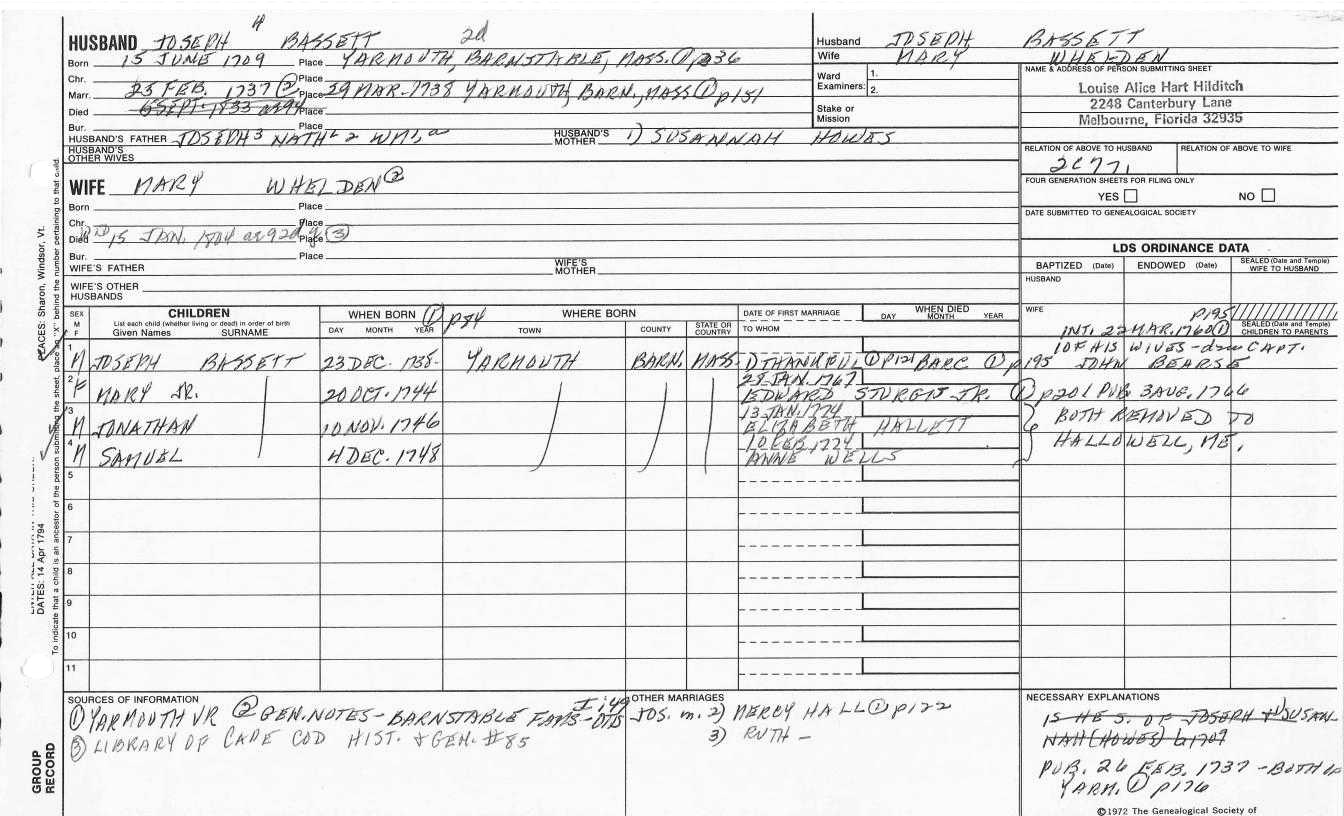 HUSBAND JOSEPH 4 BASSETT 2d
Born 15 JUNE 1709 Place YARMOUTH, BARNSTABLE, MASS. ① p236
Chr. Place
Marr. 23 FEB. 1737 ② Place 29 MAR. 1738 YARMOUTH, BARN., MASS ① p151
Died 6 SEPT. 1833 ae 94 Place
Bur. Place
HUSBAND'S FATHER JOSEPH 3 NATHL 2 WM 1 HUSBAND'S MOTHER 1) SUSANNAH HOWES
HUSBAND'S OTHER WIVES
WIFE MARY WHELDEN ②
Born Place
Chr. Place
Died 15 JAN. ae 92d Place ③
Bur. Place
WIFE'S FATHER WIFE'S MOTHER
WIFE'S OTHER HUSBANDS
Husband JOSEPH BASSETT
Wife MARY WHELDEN
Ward Examiners: 1.
2.
Stake or Mission
NAME & ADDRESS OF PERSON SUBMITTING SHEET
Louise Alice Hart Hilditch
2248 Canterbury Lane
Melbourne, Florida 32935
RELATION OF ABOVE TO HUSBAND RELATION OF ABOVE TO WIFE
2C7r,
FOUR GENERATION SHEETS FOR FILING ONLY
YES NO
DATE SUBMITTED TO GENEALOGICAL SOCIETY
LDS ORDINANCE DATA
BAPTIZED (Date) ENDOWED (Date) SEALED (Date and Temple) WIFE TO HUSBAND
HUSBAND
WIFE p195
INT. 22 MAR. 1760 ① SEALED (Date and Temple) CHILDREN TO PARENTS
SEX M F CHILDREN List each child (whether living or dead) in order of birth Given Names SURNAME WHEN BORN ① p84 DAY MONTH YEAR WHERE BORN TOWN COUNTY STATE OR COUNTRY DATE OF FIRST MARRIAGE TO WHOM WHEN DIED DAY MONTH YEAR
1 M JOSEPH BASSETT 23 DEC. 1738 YARMOUTH BARN. MASS. THANKFUL ① p121 BARC ① p195
1 OF HIS WIVES - dau CAPT. JOHN BEARSE
2 F MARY JR. 20 OCT. 1744 25 JAN. 1767 EDWARD STURGIS JR. ① p201 PUB. 3 AUG. 1766
3 M JONATHAN 10 NOV. 1746 13 JAN. 1774 ELIZABETH HALLETT
4 M SAMUEL 4 DEC. 1748 10 FEB. 1774 ANNE WELLS
BOTH REMOVED TO
HALLOWELL, ME.
5
6
7
8
9
10
11
SOURCES OF INFORMATION
① YARMOUTH VR ② GEN. NOTES - BARNSTABLE FAMS - OTIS I:49
③ LIBRARY OF CAPE COD HIST. & GEN. #85
OTHER MARRIAGES
JOS. m. 2) MERCY HALL ① p122
3) RUTH -
NECESSARY EXPLANATIONS
IS HE S. OF JOSEPH & SUSAN
NAH (HOWES) b 1709
PUB. 26 FEB. 1737 - BOTH of
YARM. ① p176
©1972 The Genealogical Society of
PLACES: Sharon, Windsor, Vt.
DATES: 14 Apr 1794
To indicate that a child is an ancestor of the person submitting the sheet, place an "X" behind the number pertaining to that child.
GROUP RECORD